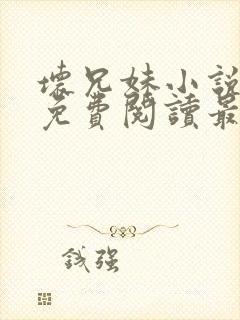 壞兄妹小說
免費閱讀最
誠强